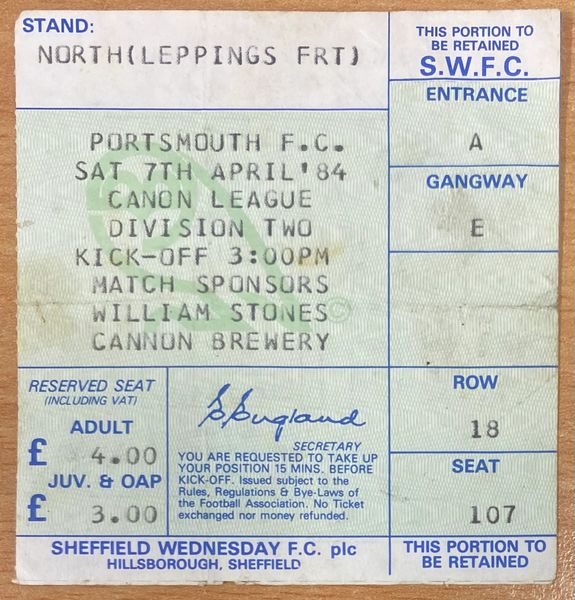 STAND:
NORTH(LEPPINGS FRT)
PORTSMOUTH F.C.
SAT 7TH APRIL'84
CANON LEAGUE
DIVISION TWO
KICK-OFF 3:00PM
MATCH SPONSORS
WILLIAM STONES
CANNON BREWERY
©
RESERVED SEAT
(INCLUDING VAT)
ADULT
£ 4.00
JUV. & OAP
£ 3.00
S England
SECRETARY
YOU ARE REQUESTED TO TAKE UP
YOUR POSITION 15 MINS. BEFORE
KICK-OFF. Issued subject to the
Rules, Regulations & Bye-Laws of
the Football Association. No Ticket
exchanged nor money refunded.
SHEFFIELD WEDNESDAY F.C. plc
HILLSBOROUGH, SHEFFIELD
THIS PORTION TO
BE RETAINED
S.W.F.C.
ENTRANCE
A
GANGWAY
E
ROW
18
SEAT
107
THIS PORTION TO
BE RETAINED